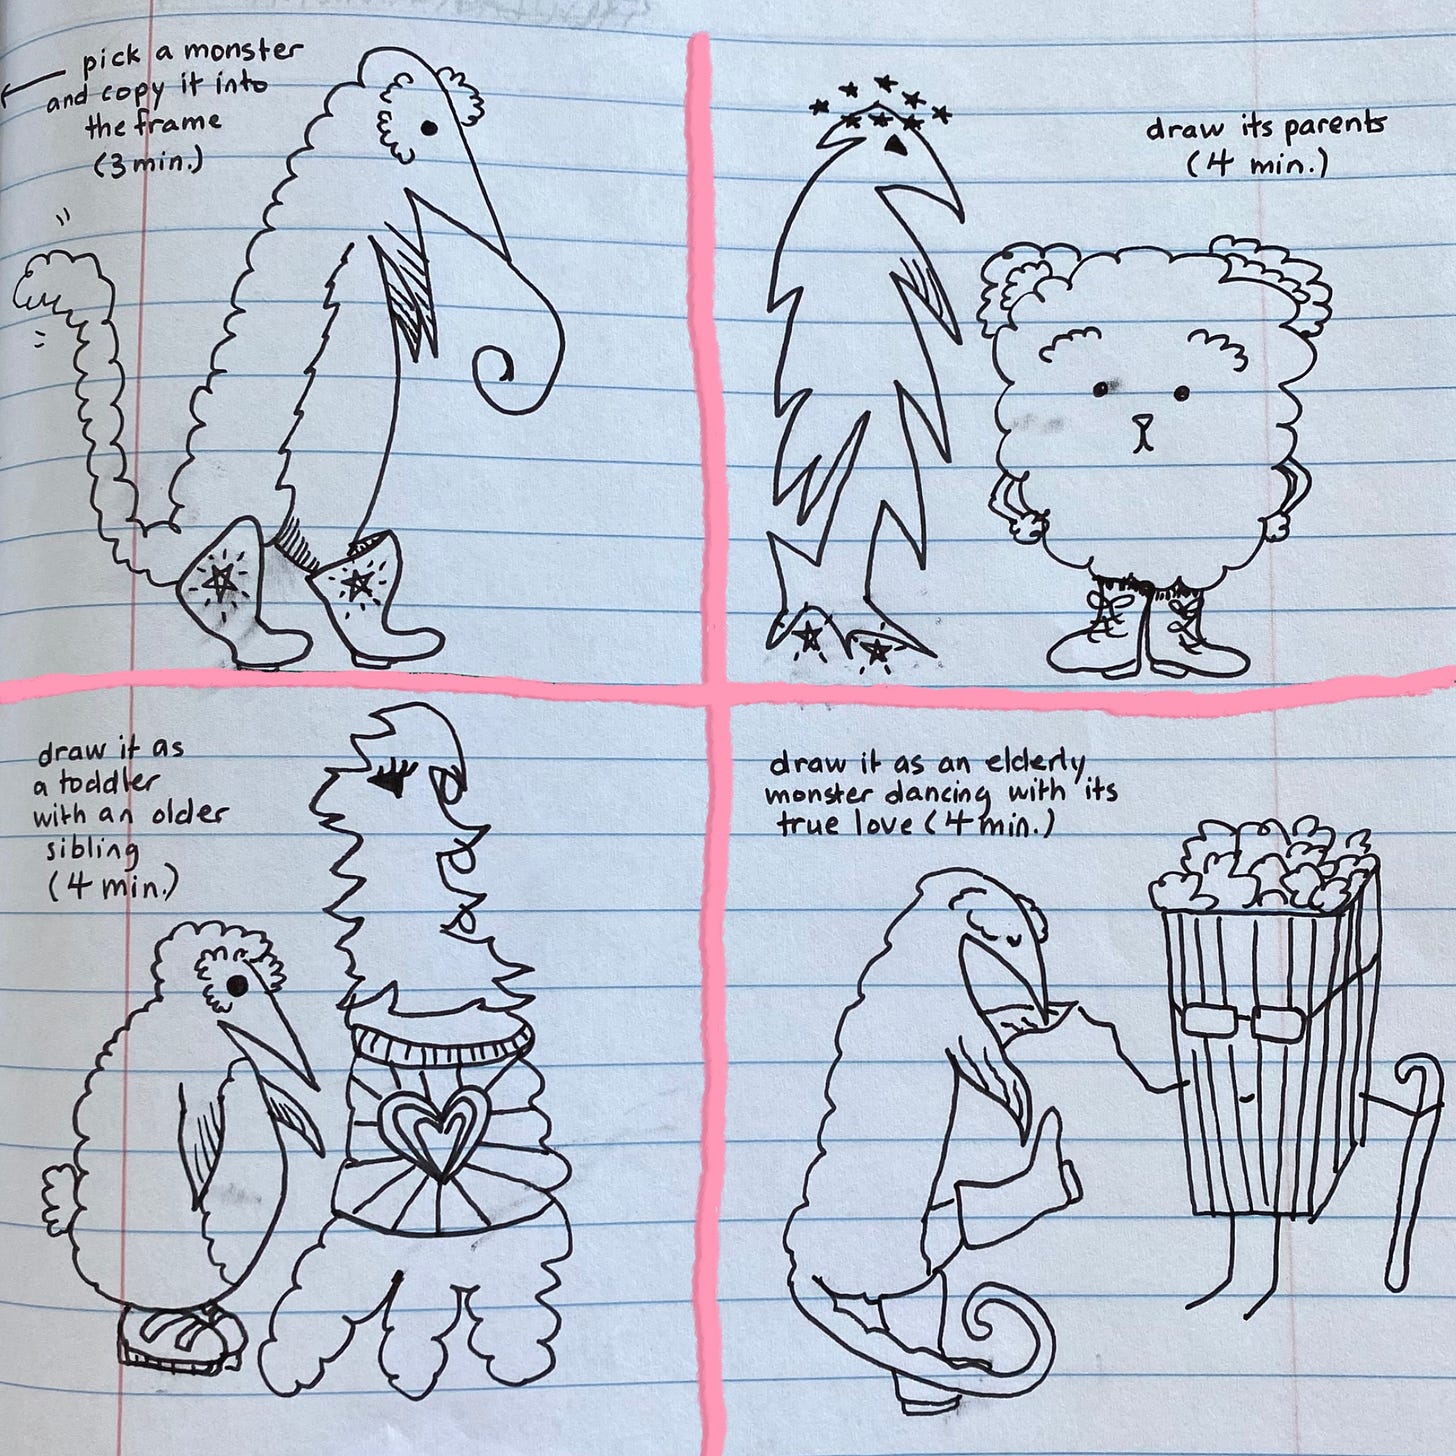 pick a monster
and copy it into
the frame
(3 min.)
draw its parents
(4 min.)
draw it as
a toddler
with an older
sibling
(4 min.)
draw it as an elderly
monster dancing with its
true love (4 min.)